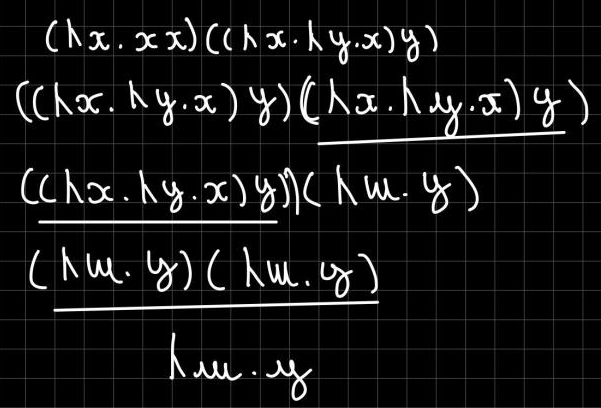 (λx.xx)((λx.λy.x)y)
((λx.λy.x)y)((λx.λy.x)y)
((λx.λy.x)y))(λw.y)
(λw.y)(λw.y)
λw.y